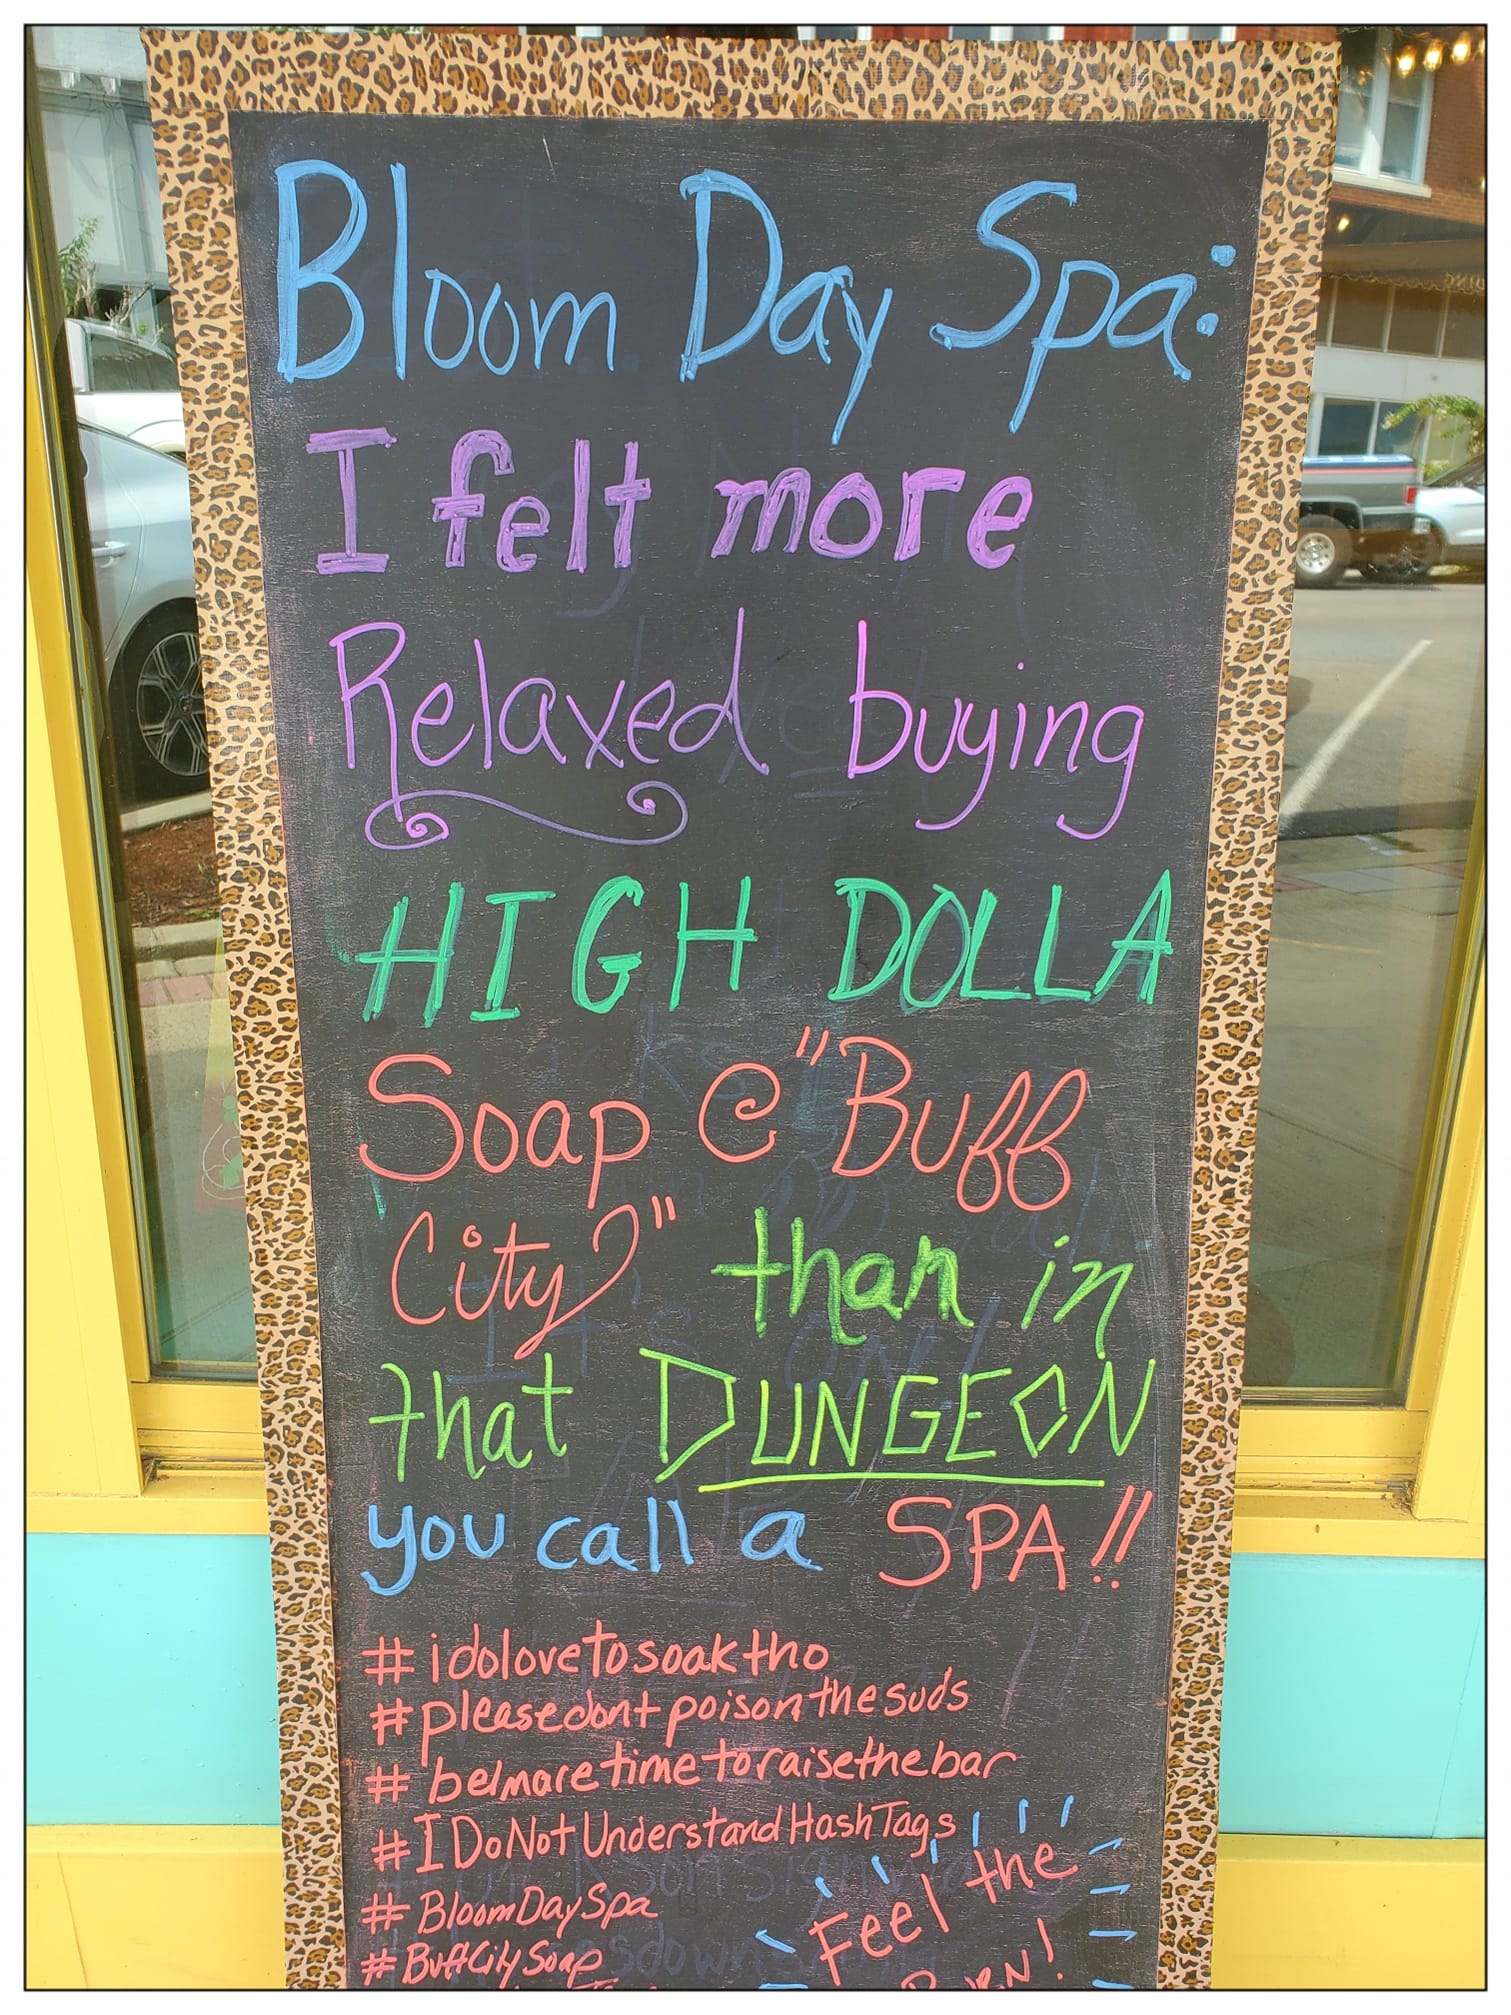 Bloom Day Spa:
I felt more
Relaxed buying
HIGH DOLLA
Soap @ "Buff
City" than in
that DUNGEON
you call a SPA!!
#idolovetosoaktho
#pleasedontpoisonthesuds
#belmoretimetoraisethebar
#IDoNotUnderstandHashTags
#BloomDaySpa
#BuffCitySoap
Feel the
BURN!